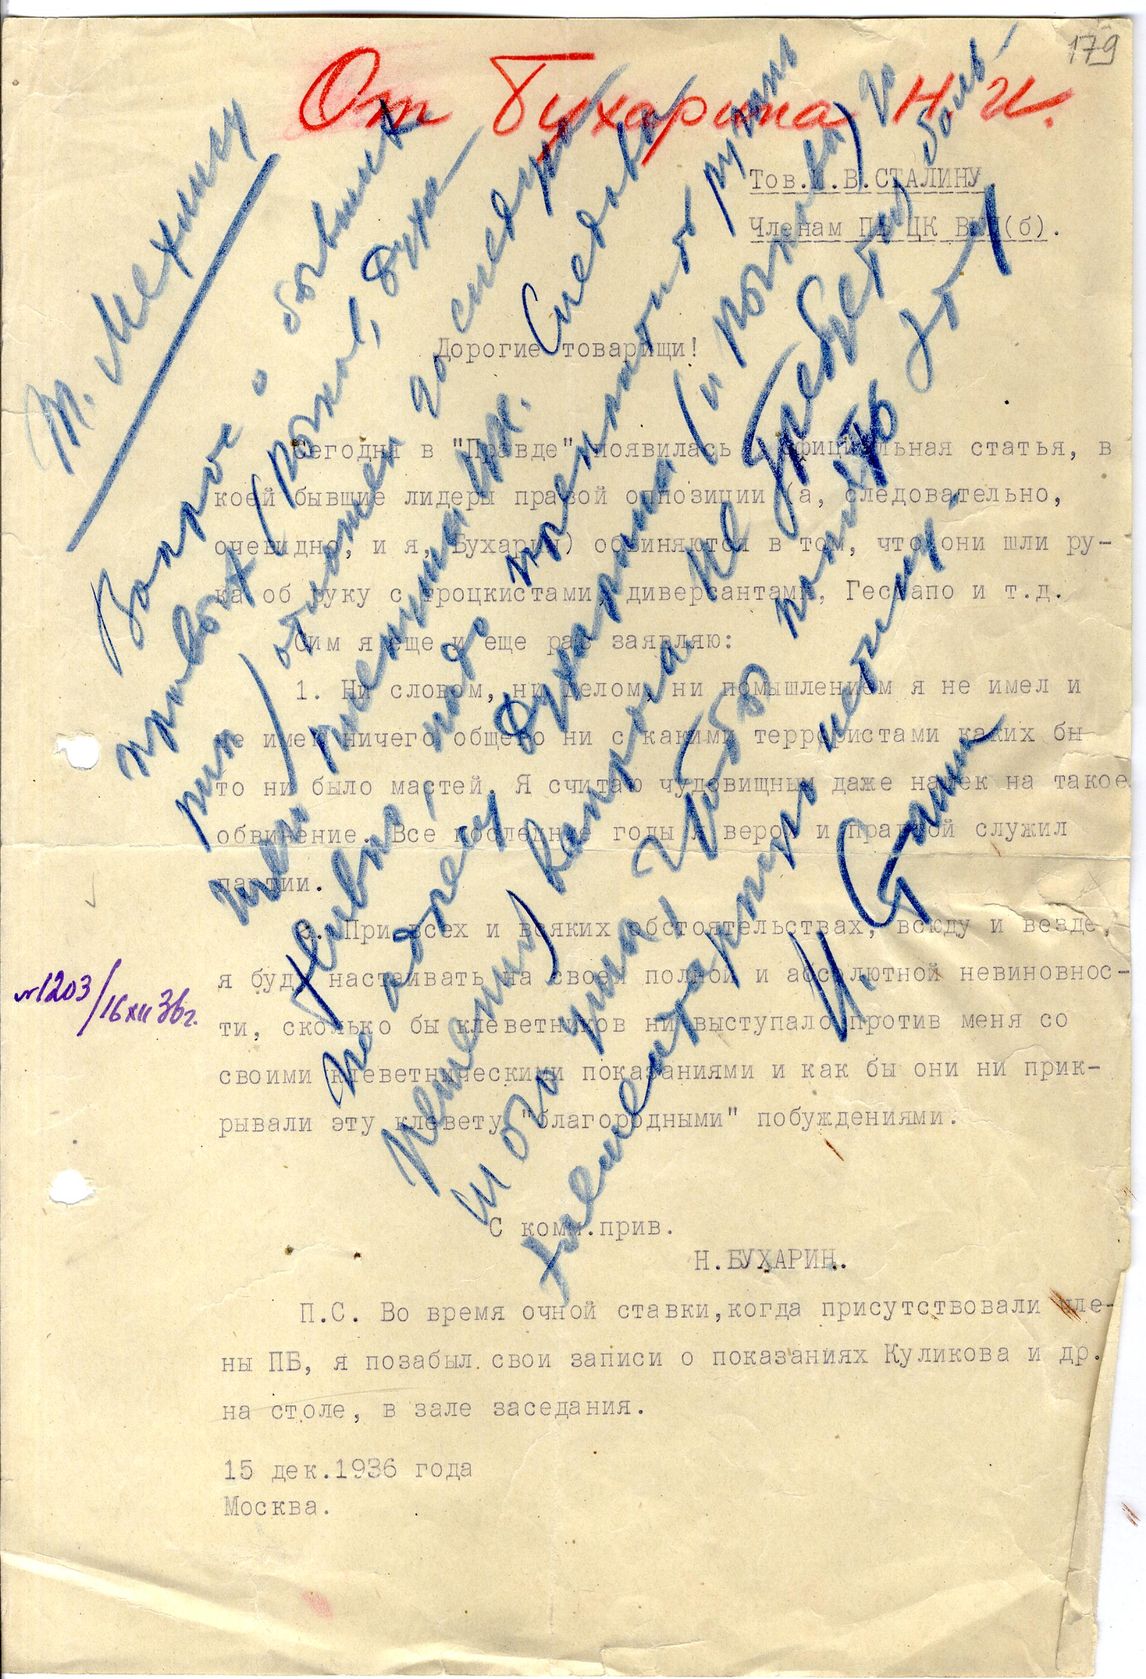 179
От Бухарина Н. И.
Тов. И.В.СТАЛИНУ
Членам ПБ ЦК ВКП(б).
Дорогие товарищи!
Сегодня в "Правде" появилась официальная статья, в
коей бывшие лидеры правой оппозиции (а, следовательно,
очевидно, и я, Бухарин) обвиняются в том, что они шли ру-
ка об руку с троцкистами, диверсантами, Гестапо и т.д.
Сим я еще и еще раз заявляю:
1. Ни словом, ни делом, ни помышлением я не имел и
не имею ничего общего ни с какими террористами каких бы
то ни было мастей. Я считаю чудовищным даже намек на такое
обвинение. Все последние годы я верой и правдой служил
партии.
2. При всех и всяких обстоятельствах, всюду и везде,
я буду настаивать на своей полной и абсолютной невиновнос-
ти, сколько бы клеветников ни выступало против меня со
своими клеветническими показаниями и как бы они ни прик-
рывали эту клевету "благородными" побуждениями.
С комм.прив.
Н.БУХАРИН.
П.С. Во время очной ставки,когда присутствовали чле-
ны ПБ, я позабыл свои записи о показаниях Куликова и др.
на столе, в зале заседания.
15 дек.1936 года
Москва.
№1203/16 XII 36г.
Т. Мехлису
Вопрос о бывших
правых (Рыков, Буха-
рин) отложен до следую
щего пленума ЦК. Следова
тельно, надо прекратить ругань
по адресу Бухарина (и Рыкова) до
решения вопроса. Не требуется боль-
шого ума, чтобы понять эту
элементарную истину.
И. Сталин